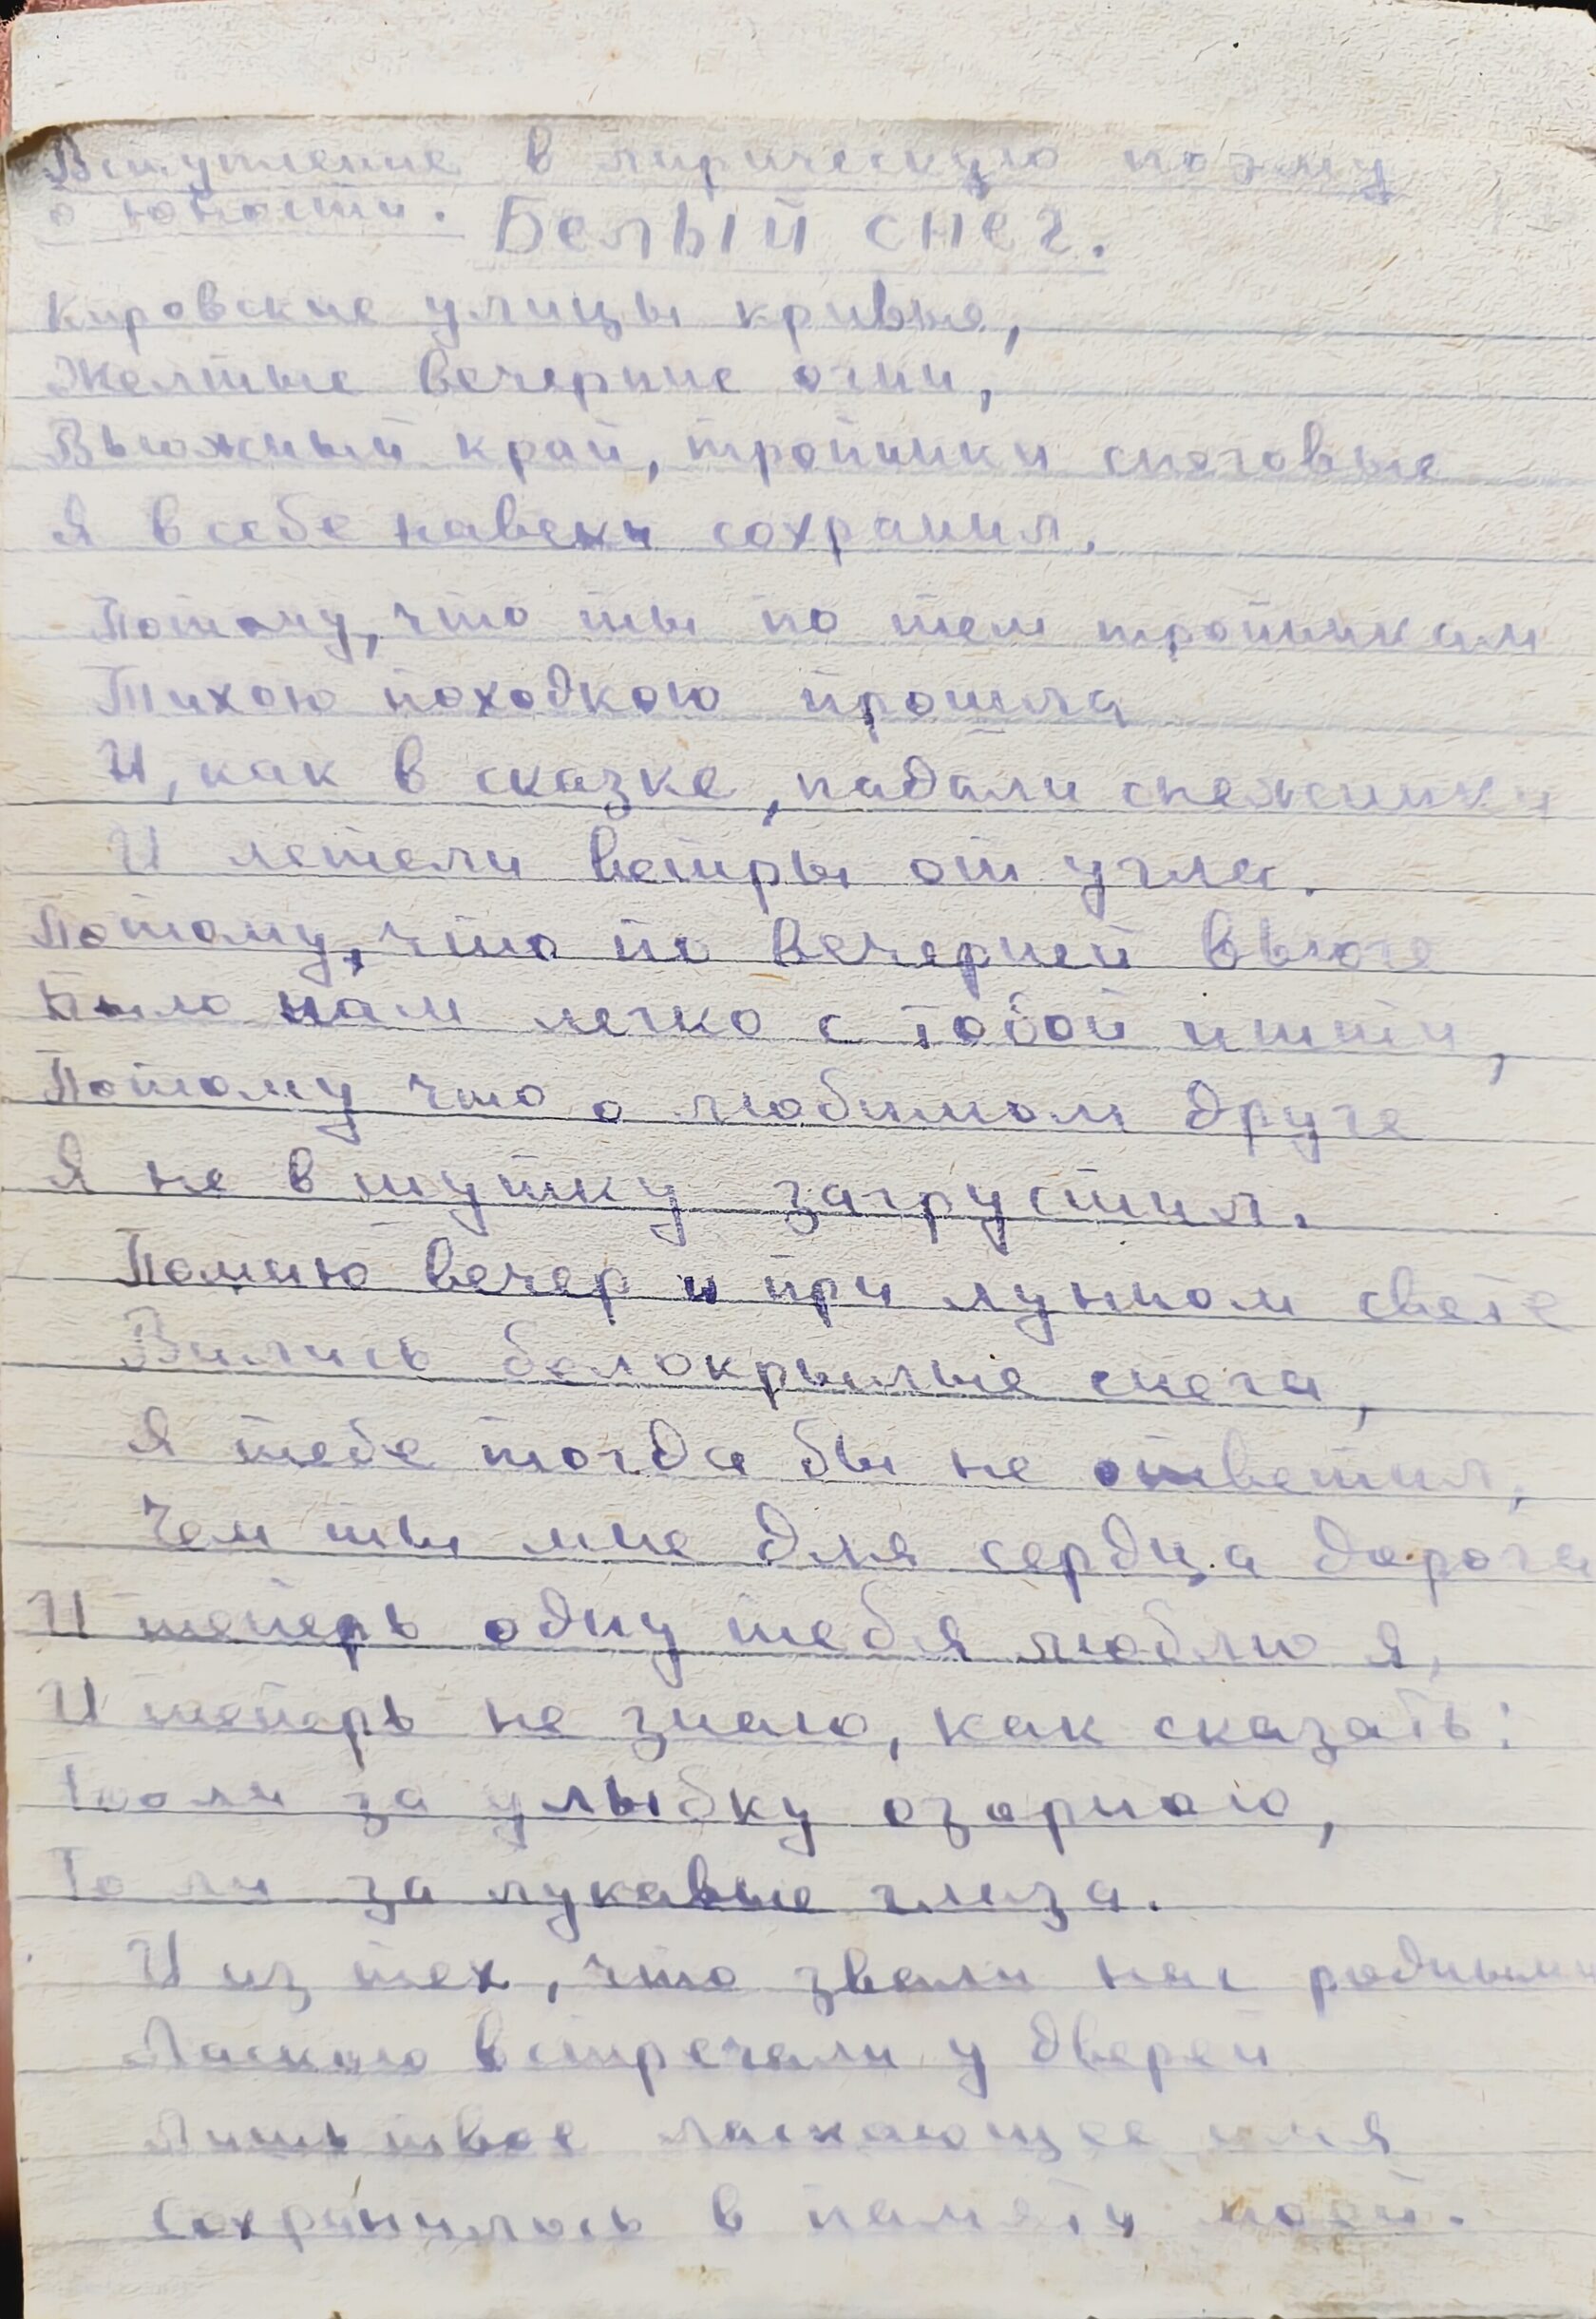 Вступление в лирическую поэму
о юности. Белый снег.
Кировские улицы кривые,
Желтые вечерние огни,
Вьюжный край, тропинки снеговые
Я в себе навеки сохранил.
Потому, что ты по тем тропинкам
Тихою походкою прошла
И, как в сказке, падали снежинки
И летели ветры от угла.
Потому, что по вечерней вьюге
Было нам легко с тобой итти,
Потому что о любимом друге
Я не в шутку загрустил.
Помню вечер и при лунном свете
Вились белокрылые снега,
Я тебе тогда бы не ответил,
Чем ты мне для сердца дорога
И теперь одну тебя люблю я,
И теперь не знаю, как сказать:
То ли за улыбку озорною,
То ли за лукавые глаза.
И из тех, что звали нас родными
Ласкою встречали у дверей
Лишь твое ласкающее имя
Сохранилось в памяти моей.